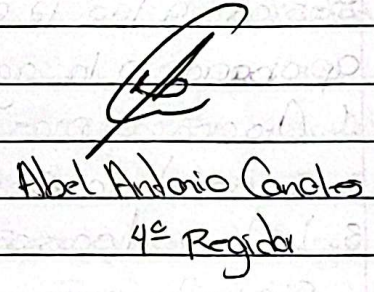 Abel Antonio Canales
4º Regidor